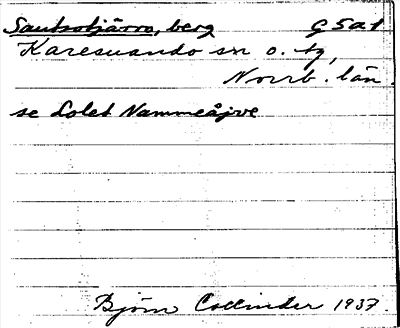 Sautsotjårro, berg G5a1
Karesuando sn o. tg,
Norrb. län.
se Lolet Nammeåjve
Björn Collinder 1937.